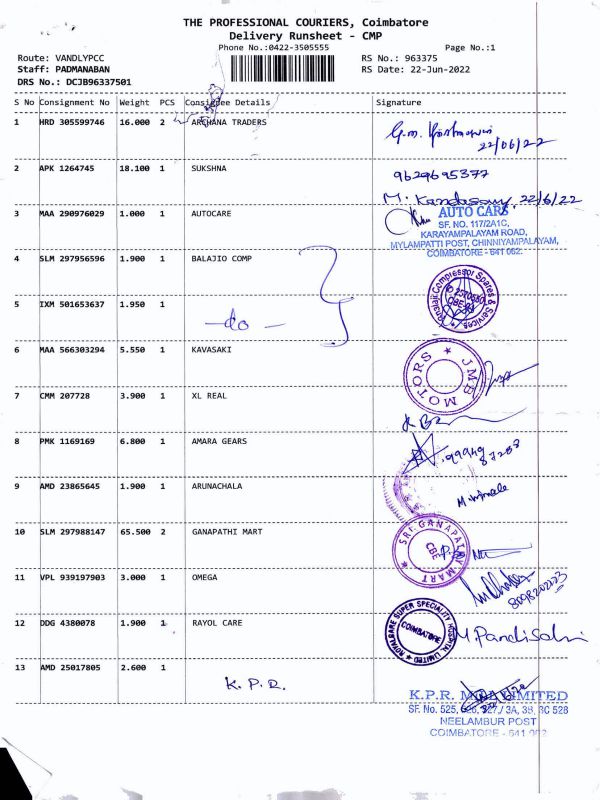 THE PROFESSIONAL COURIERS, Coimbatore
Delivery Runsheet - CMP
Phone No.:0422-3505555 Page No.:1
Route: VANDLYPCC RS No.: 963375
Staff: PADMANABAN RS Date: 22-Jun-2022
DRS No.: DCJB96337501
S No Consignment No Weight PCS Consignee Details Signature
1 HRD 305599746 16.000 2 ARCHANA TRADERS
22/06/22
2 APK 1264745 18.100 1 SUKSHNA 9629695377
M. Kandasamy 22/6/22
3 MAA 290976029 1.000 1 AUTOCARE AUTO CARS
SF. NO. 117/2A1C,
KARAYAMPALAYAM ROAD,
MYLAMPATTI POST, CHINNIYAMPALAYAM,
COIMBATORE - 641 062.
4 SLM 297956596 1.900 1 BALAJIO COMP
Compressor Spares & Services
5 IXM 501653637 1.950 1
-do-
6 MAA 566303294 5.550 1 KAVASAKI
JMB MOTORS
7 CMM 207728 3.900 1 XL REAL
8 PMK 1169169 6.800 1 AMARA GEARS
9 AMD 23865645 1.900 1 ARUNACHALA
10 SLM 297988147 65.500 2 GANAPATHI MART
SRI GANAPATHY MART
CBE
11 VPL 939197903 3.000 1 OMEGA
8098202123
12 DDG 4380078 1.900 1 RAYOL CARE
ROYALCARE SUPER SPECIALITY HOSPITAL LIMITED
COIMBATORE
13 AMD 25017805 2.600 1
K.P.R.
K.P.R. LIMITED
SF. No. 525, 526, 527 / 3A, 3B, 3C 528
NEELAMBUR POST
COIMBATORE - 641 062